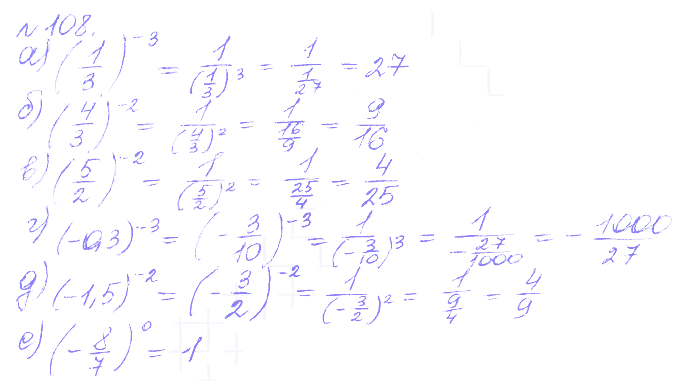 № 108.
а) (1/3)^-3 = 1/(1/3)^3 = 1/(1/27) = 27
б) (4/3)^-2 = 1/(4/3)^2 = 1/(16/9) = 9/16
в) (5/2)^-2 = 1/(5/2)^2 = 1/(25/4) = 4/25
г) (-0,3)^-3 = (-3/10)^-3 = 1/(-3/10)^3 = 1/(-27/1000) = -1000/27
д) (-1,5)^-2 = (-3/2)^-2 = 1/(-3/2)^2 = 1/(9/4) = 4/9
е) (-8/7)^0 = 1